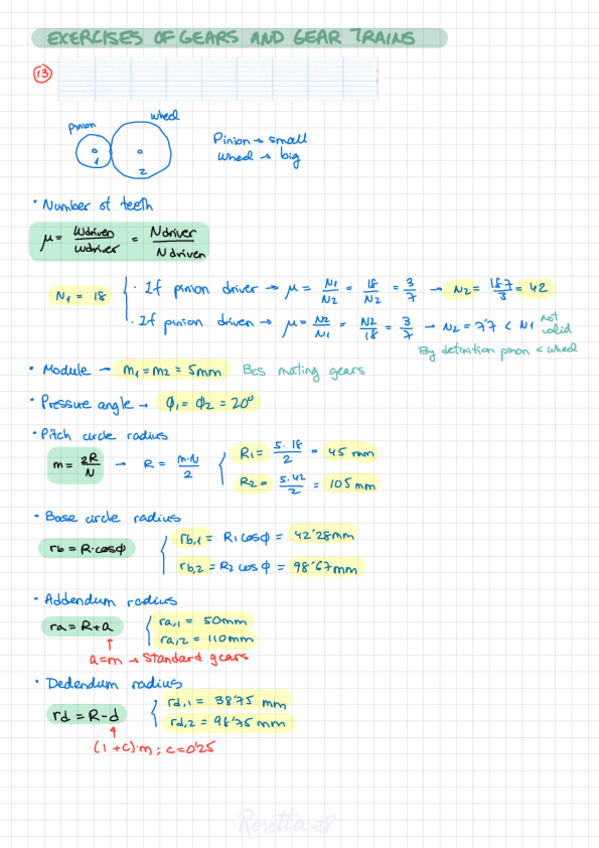 EXERCISES OF GEARS AND GEAR TRAINS
13
pinion
wheel
1
2
Pinion → small
wheel → big
• Number of teeth
μ = ωdriven / ωdriver = Ndriver / Ndriven
N₁ = 18
· If pinion driver → μ = N₁/N₂ = 18/N₂ = 3/7 → N₂ = 18·7/3 = 42
· If pinion driven → μ = N₂/N₁ = N₂/18 = 3/7 → N₂ = 7'7 < N₁ not valid
By definition pinion < wheel
• Module → m₁ = m₂ = 5mm Bcs mating gears
• Pressure angle → ϕ₁ = ϕ₂ = 20º
• Pitch circle radius
m = 2R/N → R = m·N/2
R₁ = 5·18/2 = 45 mm
R₂ = 5·42/2 = 105 mm
• Base circle radius
rb = R·cosϕ
rb,1 = R₁ cosϕ = 42'28mm
rb,2 = R₂ cos ϕ = 98'67mm
• Addendum radius
ra = R+a
ra,1 = 50mm
ra,2 = 110mm
↑
a=m → standard gears
• Dedendum radius
rd = R-d
rd,1 = 38'75 mm
rd,2 = 98'75 mm
↑
(1+c)·m ; c=0'25
Rosetta